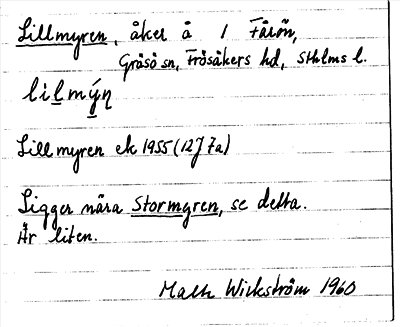 Lillmyren, åker å 1 Fårön,
Gräsö sn, Frösåkers hd, Sthlms l.
lilmýn
Lillmyren ek 1955 (12J 7a)
Ligger nära Stormyren, se detta.
Är liten.
Wickström 1960